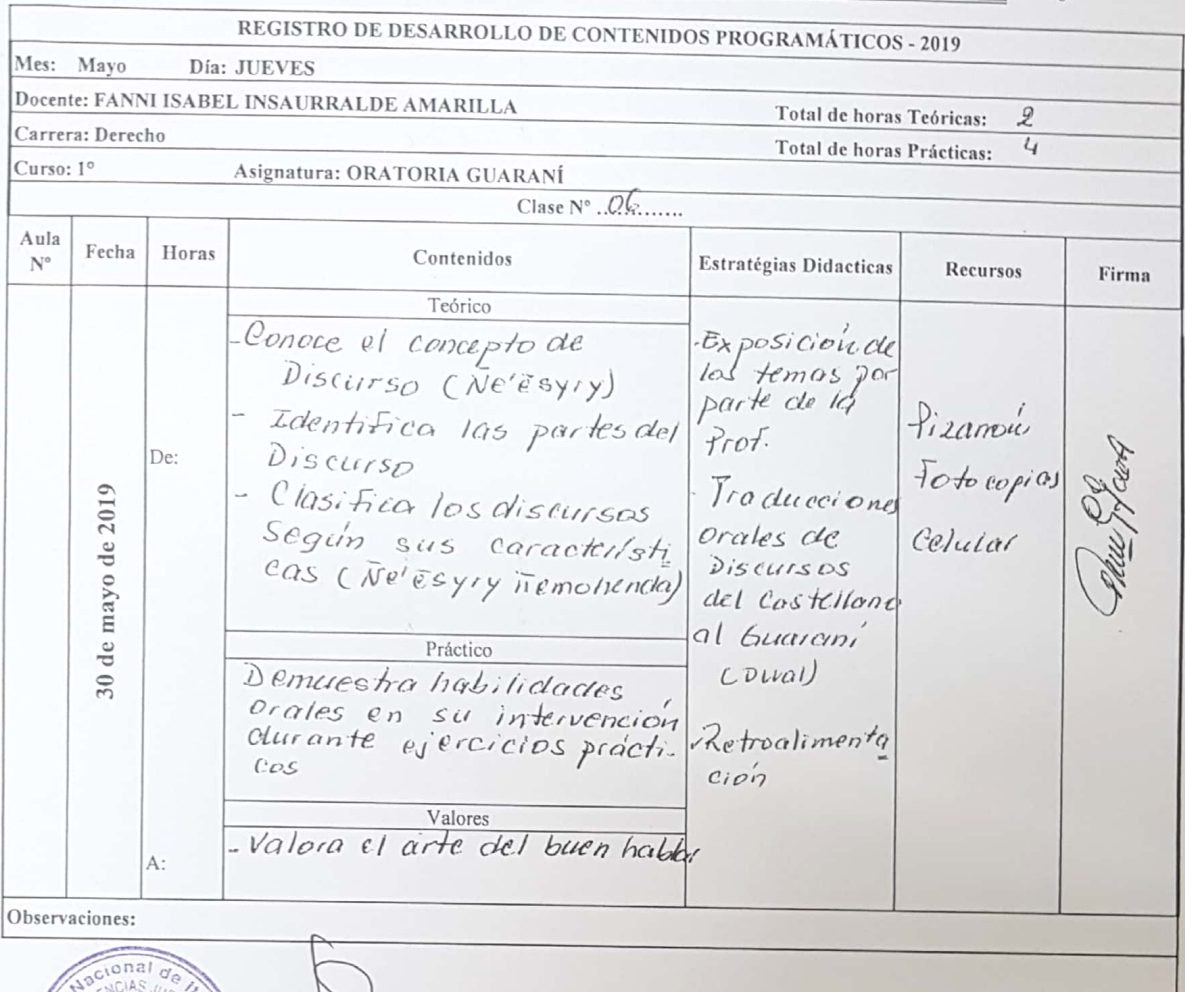 REGISTRO DE DESARROLLO DE CONTENIDOS PROGRAMÁTICOS - 2019
Mes: Mayo Día: JUEVES
Docente: FANNI ISABEL INSAURRALDE AMARILLA
Total de horas Teóricas: 2
Carrera: Derecho
Total de horas Prácticas: 4
Curso: 1° Asignatura: ORATORIA GUARANÍ
Clase N° ..06........
Aula N°
Fecha
Horas
Contenidos
Estratégias Didacticas
Recursos
Firma
30 de mayo de 2019
De:
A:
Teórico
-Conoce el concepto de
Discurso (Ñe'ẽsyry)
- Identifica las partes del
Discurso
- Clasifica los discursos
Según sus característi
cas (Ñe'ẽsyry ñemohenda)
Práctico
Demuestra habilidades
orales en su intervención
durante ejercicios prácti-
cos
Valores
- Valora el arte del buen hablar
-Exposición de
los temas por
parte de la
Prof.
- Traducciones
orales de
Discursos
del Castellano
al Guaraní
-Retroalimenta
ción
Pizarrón
Fotocopias
Celular
Observaciones:
Nacional de